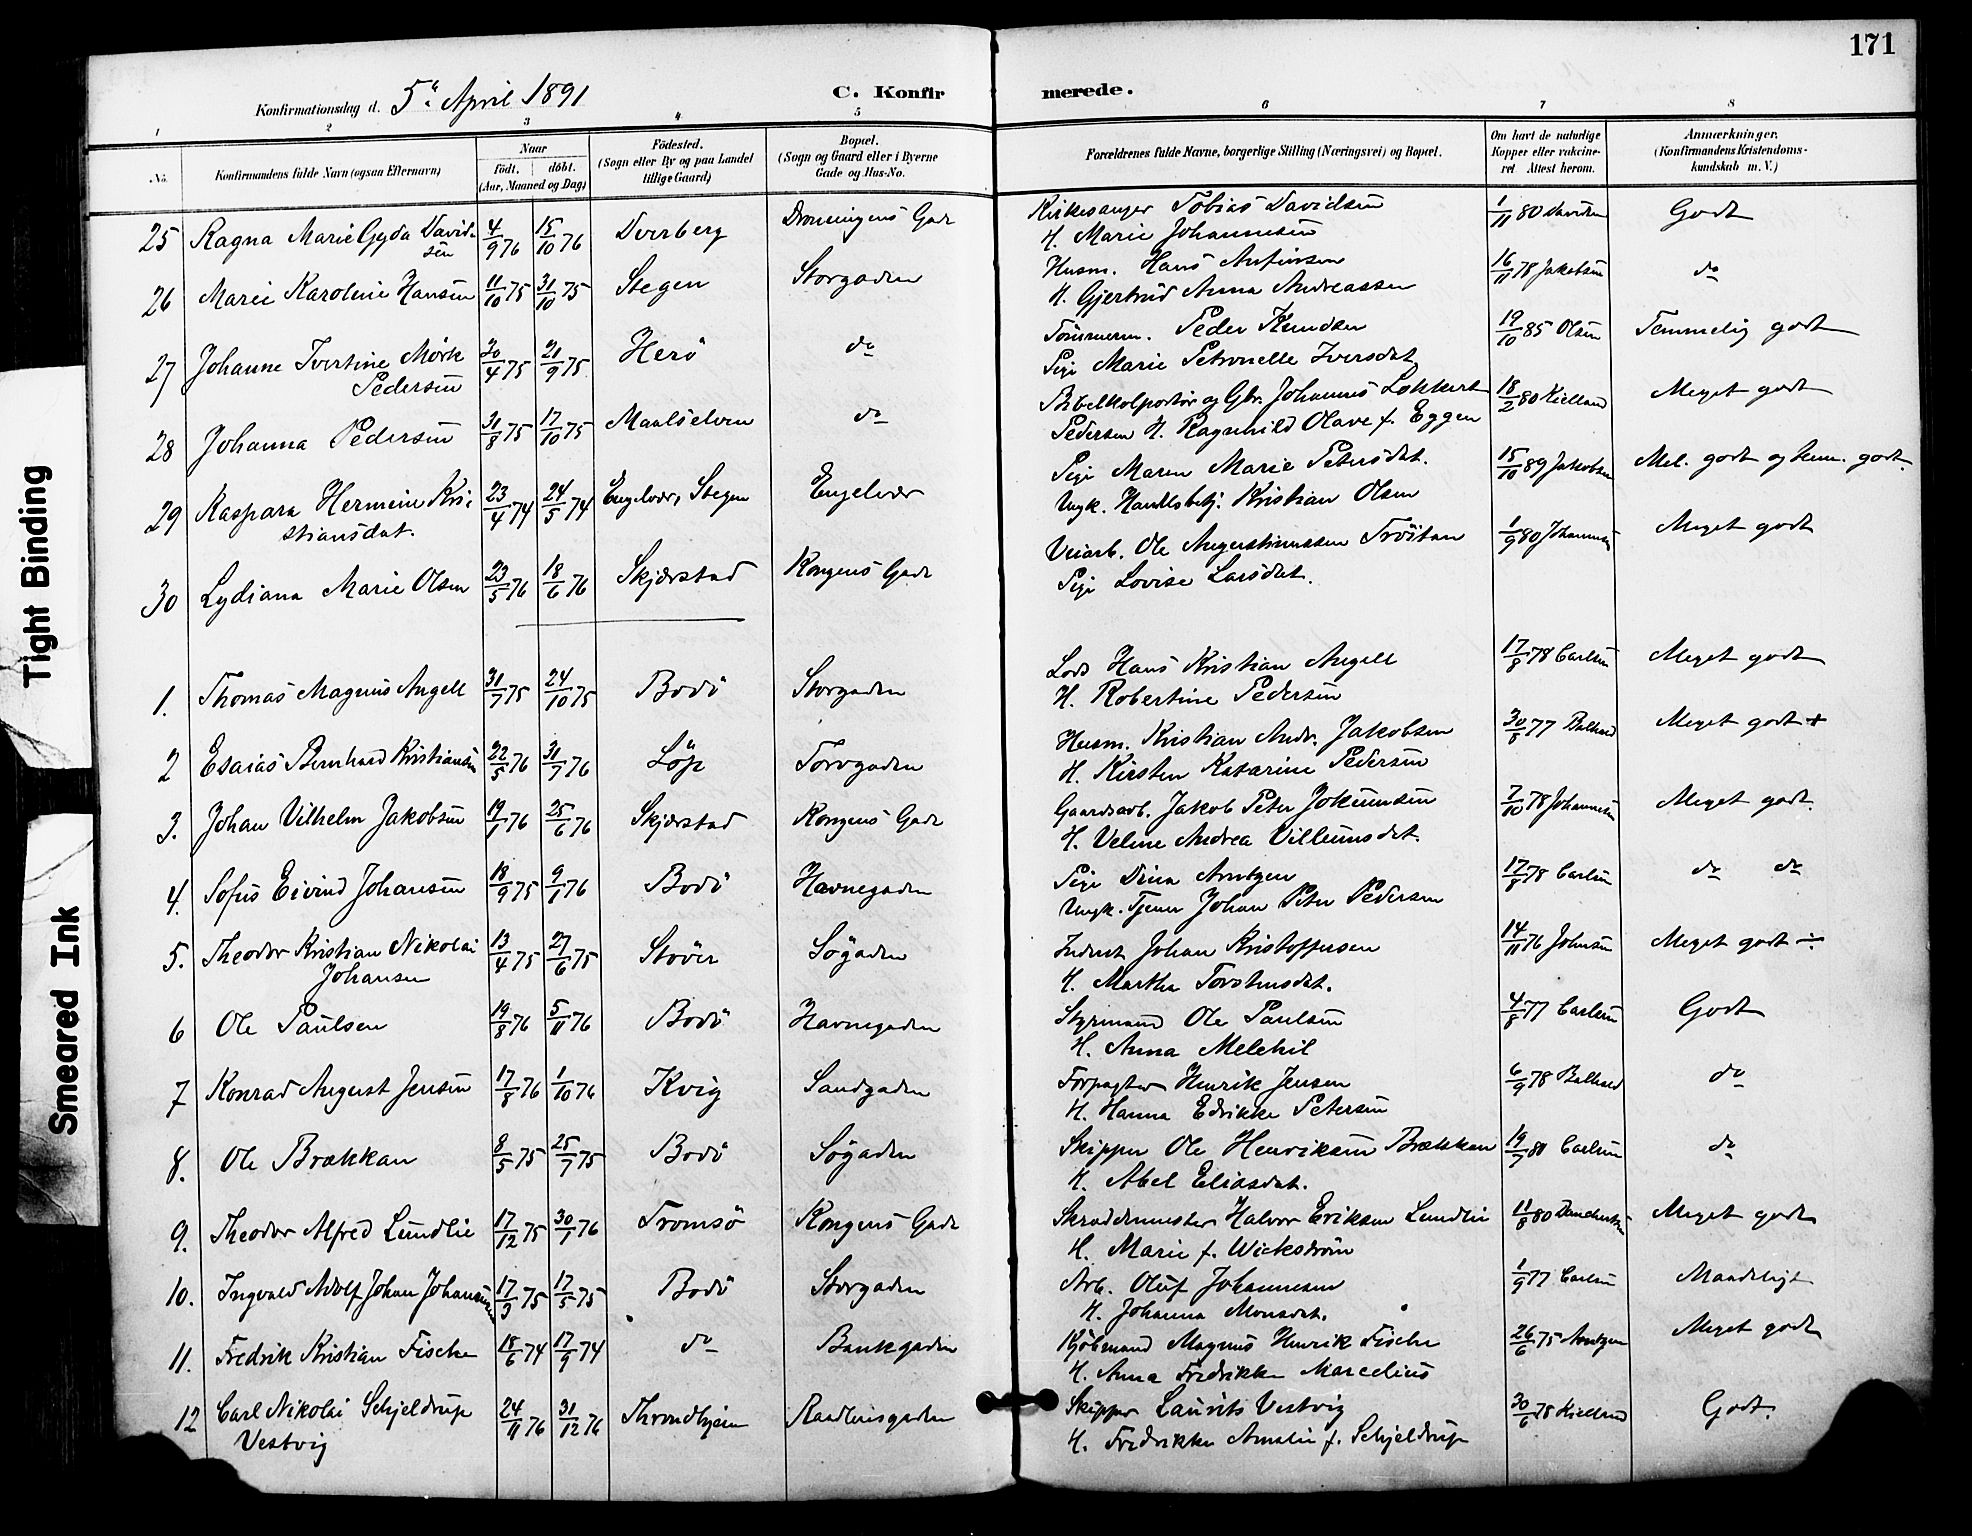 171
Konfirmationsdag d. 5te April 1891
C. Konfirmerede.
1 2 3 4 5 6 7 8
No.
Konfirmandens fulde Navn (ogsaa Efternavn)
Naar
födt. döbt.
(Aar, Maaned og Dag)
Födested.
(Sogn eller By og paa Landet
tillige Gaard)
Bopæl.
(Sogn og Gaard eller i Byerne
Gade og Hus-No.
Forældrenes fulde Navne, borgerlige Stilling (Næringsvei) og Bopæl.
Om havt de naturlige
Kopper eller vakcine-
ret Attest herom.
Anmærkninger.
(Konfirmandens Kristendoms-
kundskab m. V.)
25 Ragna Marie Gyda David- 4/9 76 15/10 76 Dverberg Dronningens Gade Kirkesanger Tobias Davidsen 1/11 80 Davidsen Godt
sen H. Marie Johannesen
26 Marie Karoline Hansen 11/10 75 31/10 75 Stegen Storgaden Husm. Hans Anfinsen 16/11 78 Jakobsen do
H. Gjertrud Anna Andreassen
27 Johanne Ivertine Mørk 30/4 75 21/9 75 Herö do Tömmerm. Peder Knudsen 19/10 85 Olsen Temmelig godt
Pedersen Pige Marie Petronelle Iversdat.
28 Johanna Pedersen 31/8 75 17/10 75 Maalselven do Bibelkolportör og Gbr. Johannes Løkkert 18/2 80 Kielland Meget godt
Pedersen H. Ragnhild Olave f. Eggen
29 Kaspara Hermine Kri- 23/4 74 24/5 74 Engelvær, Stegen Engelvær Pige Maren Marie Petersdat. 15/10 89 Jakobsen Mel. godt og tem. godt.
stiansdat. Ungk. Handlsbetj. Kristian Olsen
30 Lydiana Marie Olsen 23/5 76 18/6 76 Skjerstad Kongens Gade Veiarb. Ole Augustinussen Tröitan 1/9 80 Johannesen Meget godt
Pige Lovise Larsdat.
1. Thomas Magnus Angell 31/7 75 24/10 75 Bodö Storgaden Lods Hans Kristian Angell 17/8 78 Carlsen Meget godt
H. Robertine Pedersen
2 Esaias Bernhard Kristiansen 22/5 76 31/7 76 Löp Torvgaden Husm. Kristian Andr. Jakobsen 30/8 77 Meget godt +
H. Kirsten Katarine Pedersen
3. Johan Vilhelm Jakobsen 19/1 76 25/6 76 Skjerstad Kongens Gade Gaardsarb. Jakob Peter Jokumsen 7/10 78 Johannesen Meget godt.
H. Veline Andrea Villumsdat.
4. Sofus Eivind Johansen 18/9 75 9/1 76 Bodö Havnegaden Pige Dina Arntzen 17/8 78 Carlsen do do
Ungk. Tjener Johan Peter Pedersen
5. Theodor Kristian Nikolai 13/4 75 27/6 75 Stöver Sögaden Inderst Johan Kristoffersen 14/11 76 Johnsen Meget godt ÷
Johansen H. Martha Torstensdat.
6 Ole Paulsen 19/8 76 5/11 76 Bodö Havnegaden Styrmand Ole Paulsen 4/8 77 Carlsen Godt
H. Anna Melchil
7 Konrad August Jensen 17/8 76 1/10 76 Kvig Sandgaden Forpagter Henrik Jensen 6/9 78 do
H. Hanna Edrikke Petersen
8. Ole Brækkan 8/5 75 25/7 75 Bodö Sögaden Skipper Ole Henriksen Brækkan 19/7 80 Carlsen do
H. Abel Eliasdat.
9. Theodor Alfred Lundlie 17/12 75 30/1 76 Tromsö Kongens Gade Skræddermester Halvor Eriksen Lundlie 11/8 80 Meget godt
H. Marie f. Wickström
10. Ingvald Adolf Johan Johannesen 17/3 75 17/5 75 Bodö Storgaden Arb. Oluf Johannesen 1/9 77 Carlsen Maadeligt
H. Johanna Monsdat.
11. Fredrik Kristian Fischer 18/6 74 17/9 74 do Bankgaden Kjöbmand Magnus Henrik Fischer 26/6 75 Arntzen Meget godt
H. Anna Fredrikke Marcelius
12 Carl Nikolai Schjeldrup 24/11 76 31/12 76 Throndhjem Raadhusgaden Skipper Laurits Vestvig 30/6 78 Kielland Godt.
Vestvig H. Fredrikke Amalie f. Schjeldrup
Tight Binding
Smeared Ink